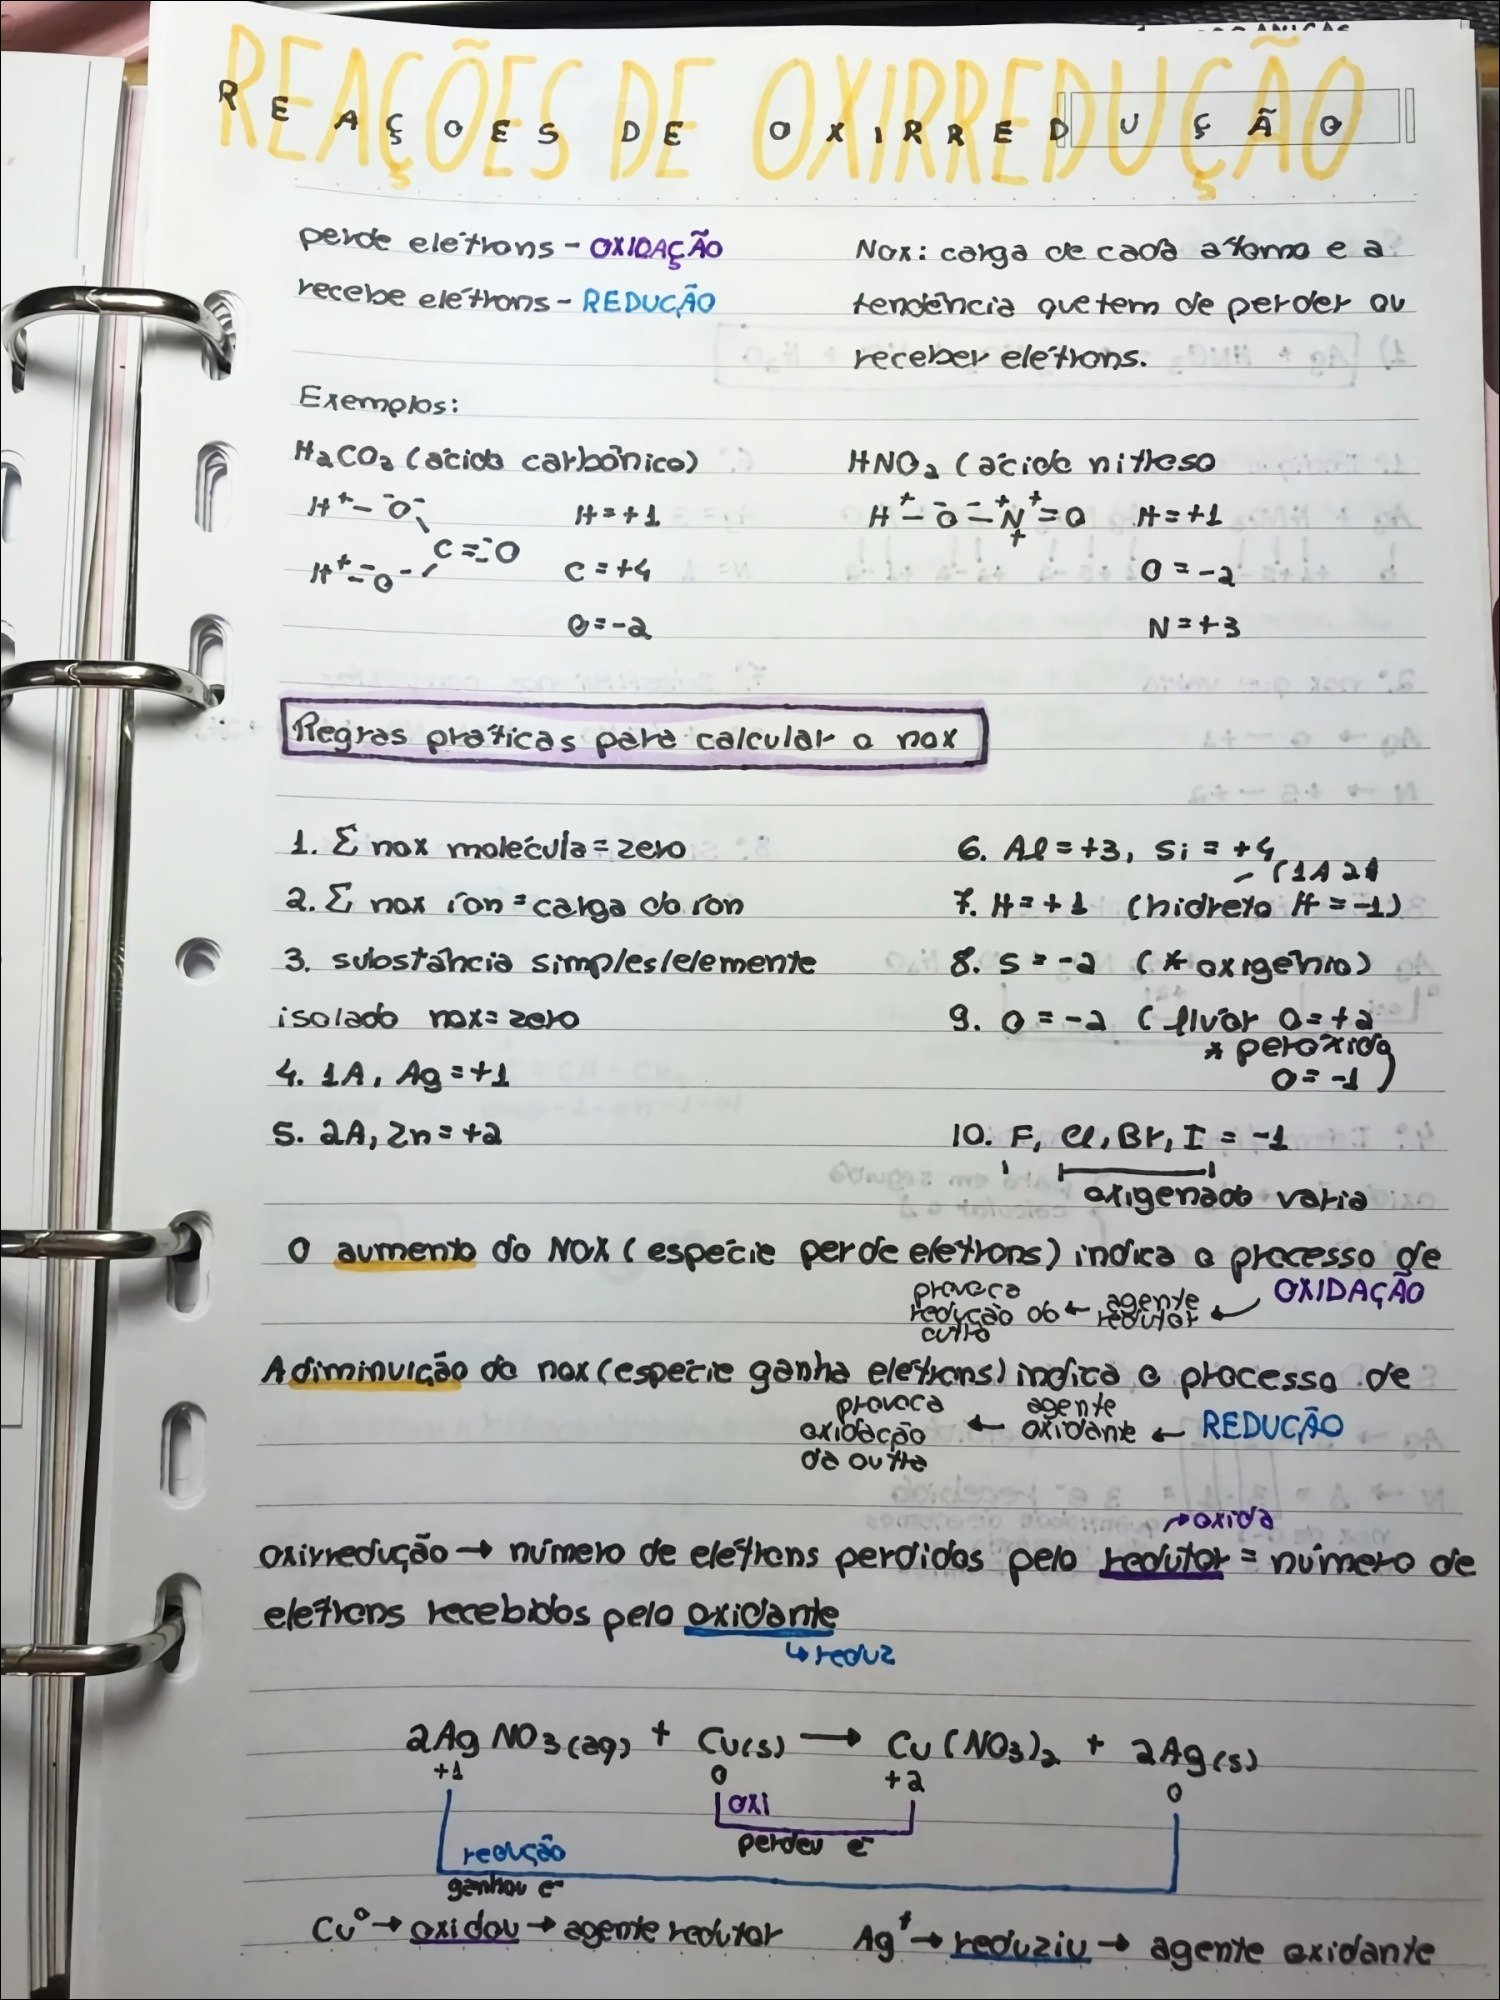 REAÇÕES DE OXIRREDUÇÃO
REAÇOES DE OXIRREDUÇÃO
perde elétrons - OXIDAÇÃO
recebe elétrons - REDUÇÃO
Nox: carga de cada átomo e a
tendência que tem de perder ou
receber elétrons.
Exemplos:
H₂CO₂ (ácido carbônico)
H⁺ - ⁻O⁻
C = O
H⁺ - ⁻O⁻
H = +1
C = +4
O = -2
HNO₂ (ácido nitroso
H⁺ - ⁻O⁻ - ⁺N⁺ = O
+
H = +1
O = -2
N = +3
Regras práticas para calcular o nox
1. Σ nox molécula = zero
2. Σ nox íon = carga do íon
3. substância simples/elemento
isolado nox = zero
4. 1A, Ag = +1
5. 2A, Zn = +2
6. Al = +3, Si = +4
(1A 2A
7. H = +1 (hidreto H = -1)
8. S = -2 (* oxigênio)
9. O = -2 (flúor O = +2
* peróxido
O = -1)
10. F, Cl, Br, I = -1
oxigenado varia
O aumento do NOX (espécie perde elétrons) indica o processo de
OXIDAÇÃO
provoca redução do outro ← agente redutor ←
A diminuição do nox (espécie ganha elétrons) indica o processo de
provoca oxidação da outra ← agente oxidante ← REDUÇÃO
→ oxida
oxirredução → número de elétrons perdidos pelo redutor = número de
elétrons recebidos pelo oxidante
↳ reduz
2AgNO₃(aq) + Cu(s) → Cu(NO₃)₂ + 2Ag(s)
+1 0 +2 0
oxi
perdeu e⁻
redução
ganhou e⁻
Cu⁰ → oxidou → agente redutor
Ag⁺ → reduziu → agente oxidante